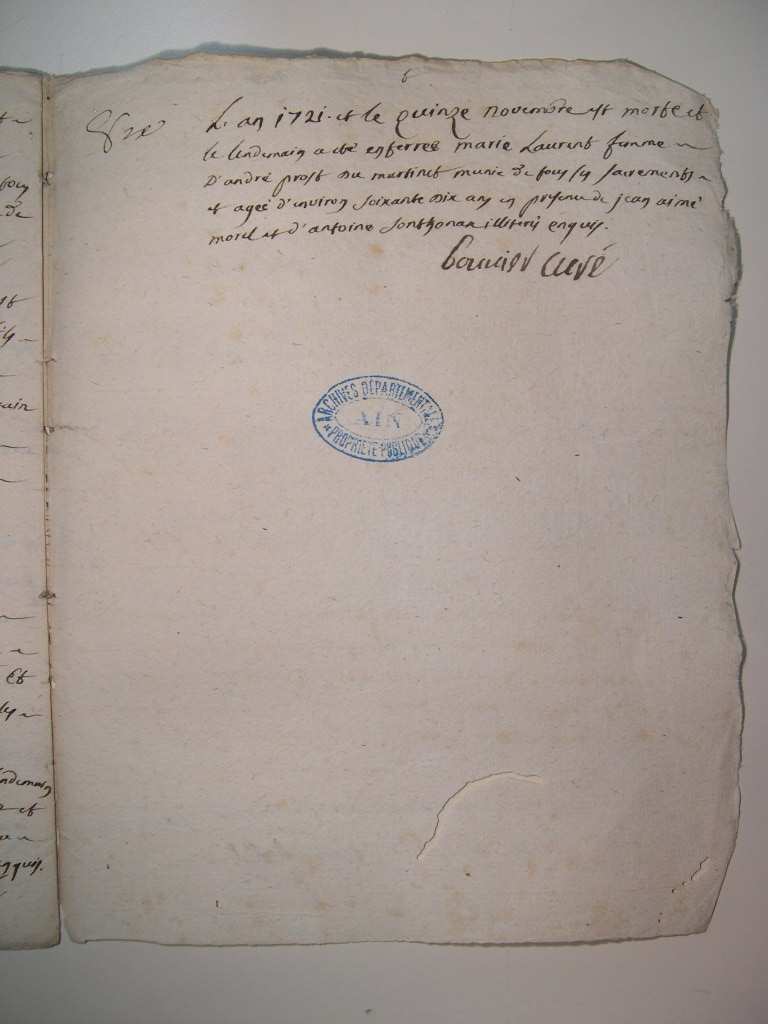 6
L'an 1721 et le quinze novembre est morte et
le lendemain a eté enterreé marie Laurent femme
D'andré prost du martinet munie de tous ses sacrements
et ageé d'environ soixante dix ans en presence de jean aimé
morel et d'antoine Sonthonax illiterés enquis.
curé
ARCHIVES DÉPARTEMENTALES
AIN
PROPRIÉTÉ PUBLIQUE